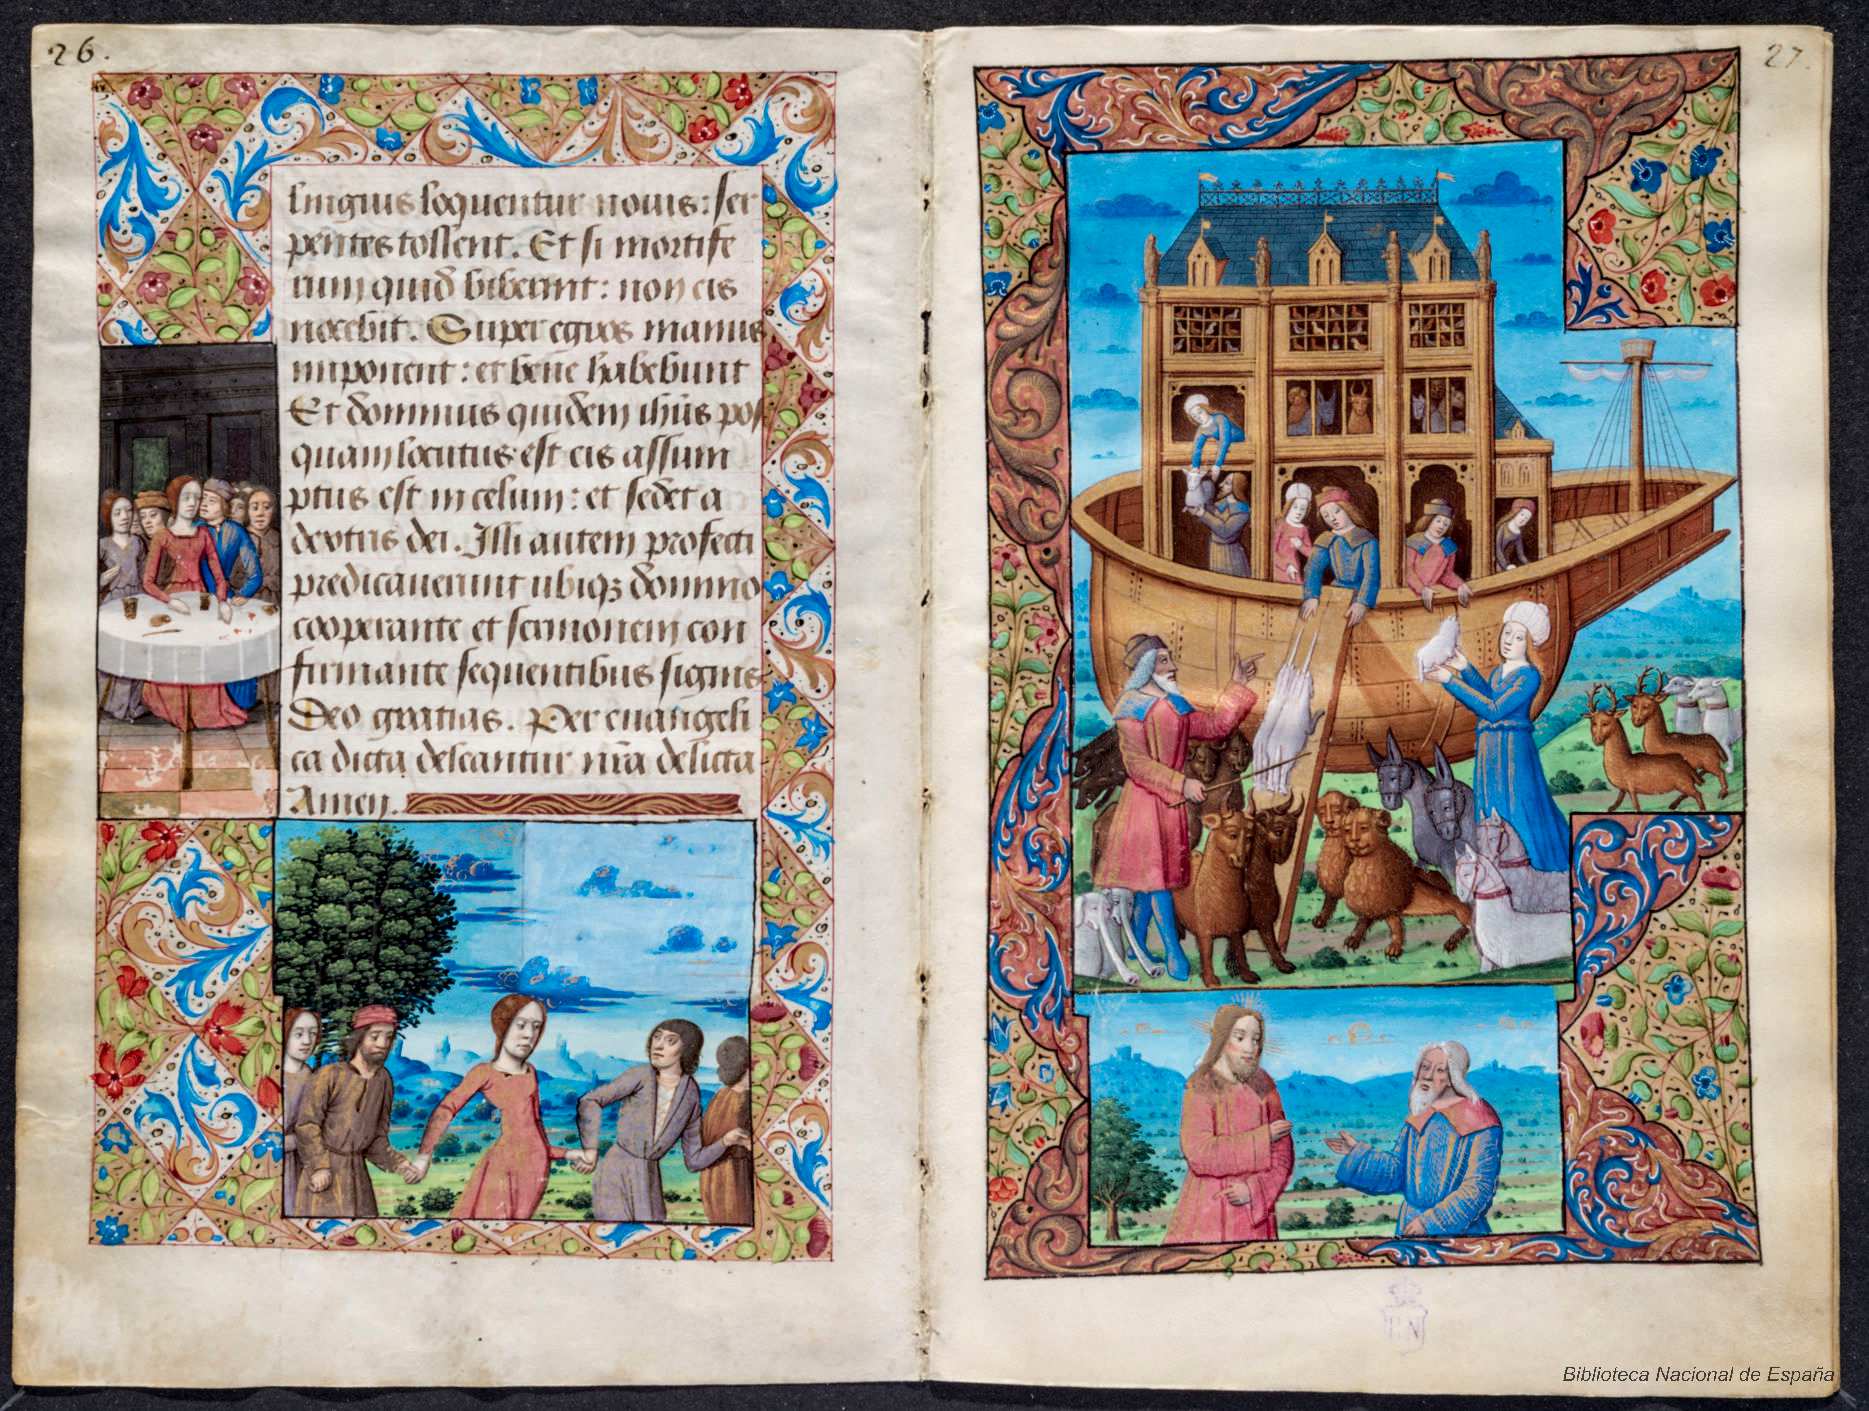 26.
linguis loquentur nouis: ser
pentes tollent. Et si mortife
rum quid biberint: non eis
nocebit. Super egros manus
imponent: et bene habebunt
Et dominus quidem ihūs pos
quam locutus est eis assum
ptus est in celum: et sedet a
dextris dei. Illi autem profecti
predicauerunt ubiqꝫ domino
cooperante et sermonem con
firmante sequentibus signis.
Deo gratias. Per euangeli
ca dicta deleantur nr̄a delicta
Amen.
27.
Biblioteca Nacional de España